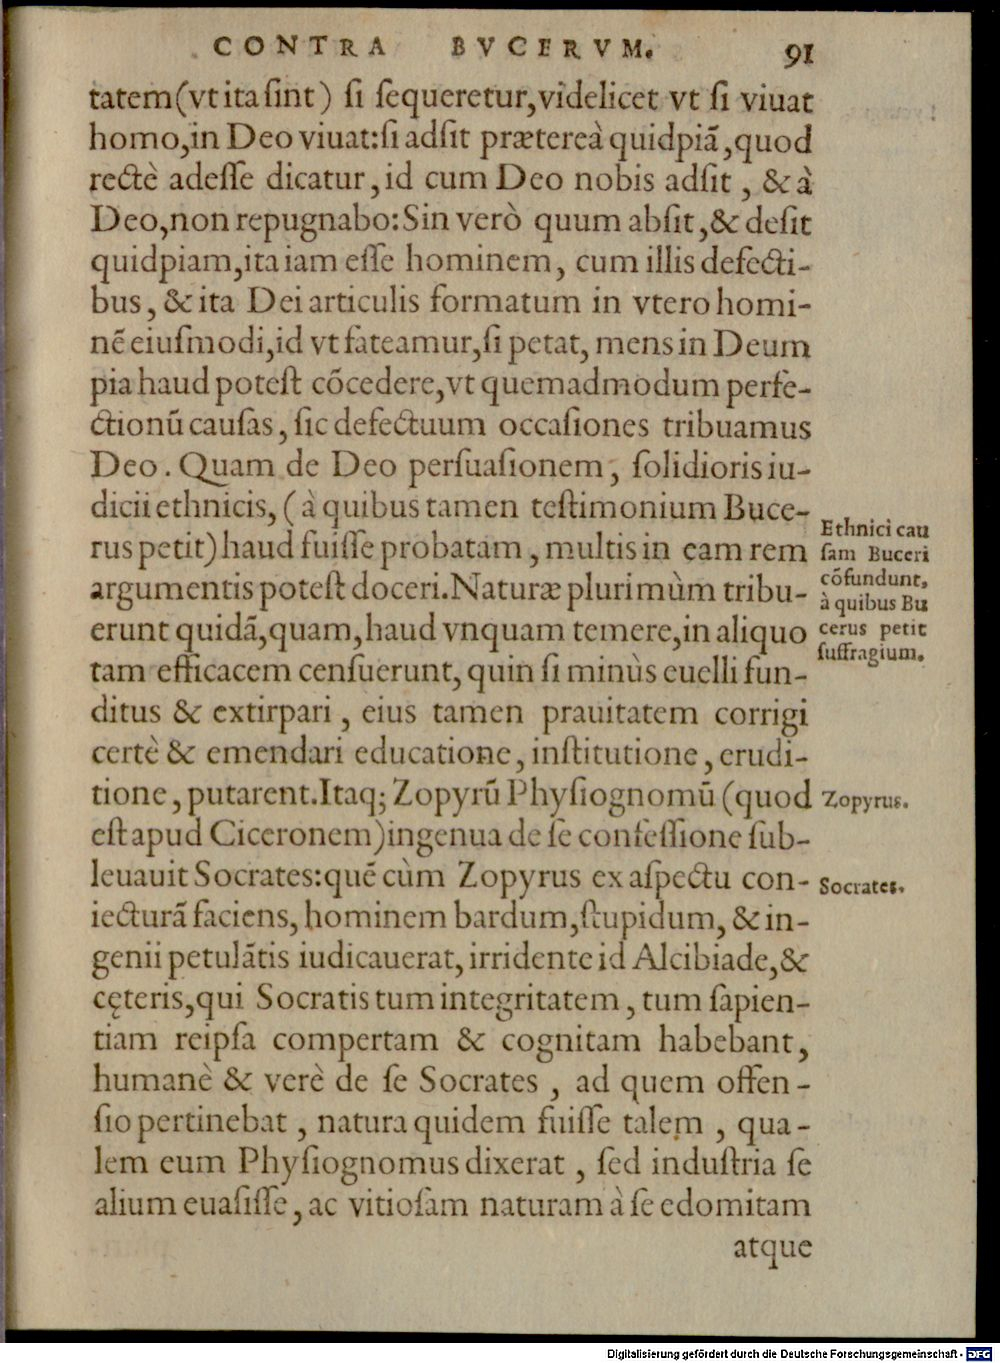 CONTRA BVCERVM. 91
tatem (vt ita ſint) ſi ſequeretur, videlicet vt ſi viuat
homo, in Deo viuat: ſi adſit prætereà quidpiã, quod
rectè adeſſe dicatur, id cum Deo nobis adſit, & à
Deo, non repugnabo: Sin verò quum abſit, & deſit
quidpiam, ita iam eſſe hominem, cum illis defecti-
bus, & ita Dei articulis formatum in vtero homi-
nẽ eiuſmodi, id vt fateamur, ſi petat, mens in Deum
pia haud poteſt cõcedere, vt quemadmodum perfe-
ctionũ cauſas, ſic defectuum occaſiones tribuamus
Deo. Quam de Deo perſuaſionem, ſolidioris iu-
dicii ethnicis, (à quibus tamen teſtimonium Buce-
rus petit) haud fuiſſe probatam, multis in eam rem
argumentis poteſt doceri. Naturæ plurimùm tribu-
erunt quidã, quam, haud vnquam temere, in aliquo
tam efficacem cenſuerunt, quin ſi minùs euelli fun-
ditus & extirpari, eius tamen prauitatem corrigi
certè & emendari educatione, inſtitutione, erudi-
tione, putarent. Itaq; Zopyrũ Phyſiognomũ (quod
eſt apud Ciceronem) ingenua de ſe confeſſione ſub-
leuauit Socrates: quẽ cùm Zopyrus ex aſpectu con-
iecturã faciens, hominem bardum, ſtupidum, & in-
genii petulãtis iudicauerat, irridente id Alcibiade, &
cęteris, qui Socratis tum integritatem, tum ſapien-
tiam reipſa compertam & cognitam habebant,
humanè & verè de ſe Socrates, ad quem offen-
ſio pertinebat, natura quidem fuiſſe talem, qua-
lem eum Phyſiognomus dixerat, ſed induſtria ſe
alium euaſiſſe, ac vitioſam naturam à ſe edomitam
atque
Ethnici cau
ſam Buceri
cõfundunt,
à quibus Bu
cerus petit
ſuffragium.
Zopyrus.
Socrates.
Digitalisierung gefördert durch die Deutsche Forschungsgemeinschaft - DFG